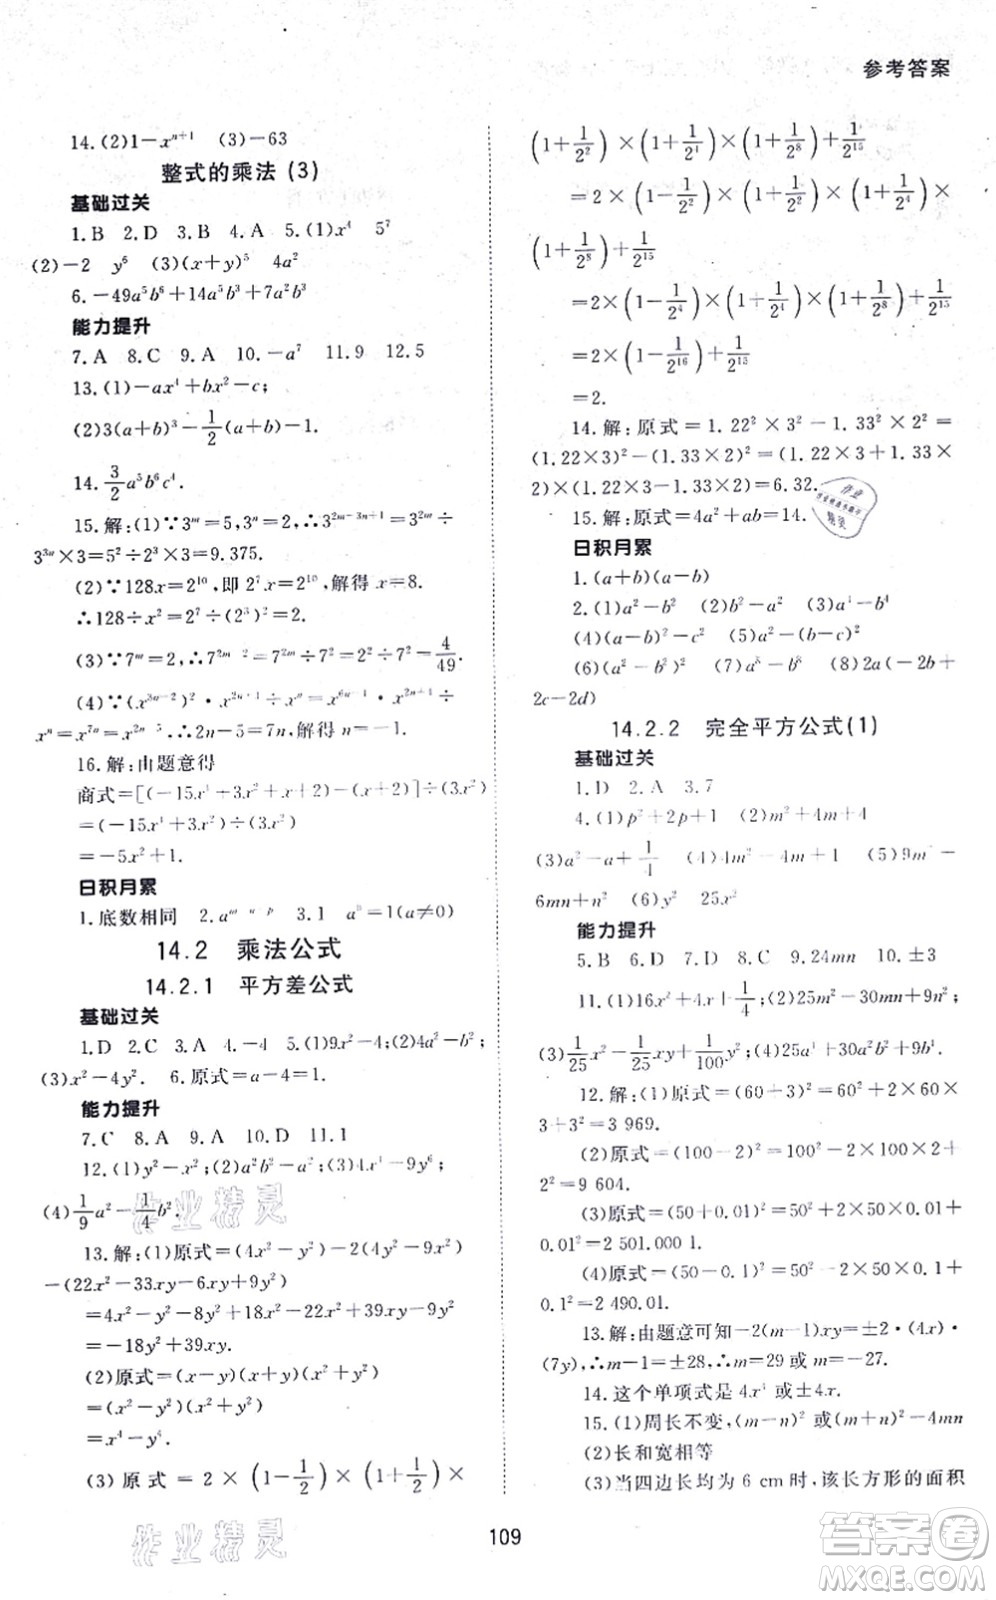 参考答案
14.(2)1-xⁿ⁺¹ (3)-63
整式的乘法(3)
基础过关
1.B 2.D 3.B 4.A 5.(1)x⁴ 5⁷
(2)-2 y⁶ (3)(x+y)⁵ 4a²
6.-49a⁵b⁶+14a⁵b³+7a²b²
能力提升
7.A 8.C 9.A 10.-a⁷ 11.9 12.5
13.(1)-ax⁴+bx²-c;
(2)3(a+b)³-1/2(a+b)-1.
14.3/2a⁵b⁶c⁴.
15.解:(1)∵3ᵐ=5,3ⁿ=2,∴3²ᵐ⁻³ⁿ⁺¹=3²ᵐ÷
3³ⁿ×3=5²÷2³×3=9.375.
(2)∵128x=2¹⁰,即2⁷x=2¹⁰,解得x=8.
∴128÷x²=2⁷÷(2³)²=2.
(3)∵7ᵐ=2,∴7²ᵐ⁻²=7²ᵐ÷7²=2²÷7²=4/49.
(4)∵(x³ⁿ⁻²)²·x²ⁿ⁺¹÷xⁿ=x⁶ⁿ⁻⁴·x²ⁿ⁺¹÷
xⁿ=x⁷ⁿ⁻³=x²ⁿ⁻⁵.
16.解:由题意得
商式=[(-15x⁴+3x²+x+2)-(x+2)]÷(3x²)
=(-15x⁴+3x²)÷(3x²)
=-5x²+1.
日积月累
1.底数相同 2.aᵐ⁻ⁿ 3.1 a⁰=1(a≠0)
14.2 乘法公式
14.2.1 平方差公式
基础过关
1.D 2.C 3.A 4.-4 5.(1)9x²-4;(2)4a²-b²;
(3)x²-4y². 6.原式=a-4=1.
能力提升
7.C 8.A 9.A 10.D 11.1
12.(1)y²-x²;(2)a²b²-a²;(3)4x⁴-9y⁶;
(4)1/9a²-1/4b².
13.解:(1)原式=(4x²-y²)-2(4x²-y²)
-(22x²-33xy-6xy+9y²)
=4x²-y²-8x²+2y²-22x²+39xy-9y²
=-18y²+39xy.
(2)原式=(x-y)(x+y)(x²+y²)
=(x²-y²)(x²+y²)
=x⁴-y⁴.
(3)原式=2×(1-1/2)×(1+1/2)×
(1+1/2²)×(1+1/2⁴)×(1+1/2⁸)+1/2¹⁵
=2×(1-1/2²)×(1+1/2²)×(1+1/2⁴)×
(1+1/2⁸)+1/2¹⁵
=2×(1-1/2⁴)×(1+1/2⁴)×(1+1/2⁸)+1/2¹⁵
=2×(1-1/2¹⁶)+1/2¹⁵
=2.
14.解:原式=1.22²×3²-1.33²×2²=
(1.22×3)²-(1.33×2)²=(1.22×3+1.33×
2)×(1.22×3-1.33×2)=6.32.
15.解:原式=4a²+ab=14.
日积月累
1.(a+b)(a-b)
2.(1)a²-b² (2)b²-a² (3)a⁴-b⁴
(4)(a-b)²-c² (5)a²-(b+c)²
(6)(a²-b²)² (7)a⁸-b⁸ (8)2a(-2b+
2c-2d)
14.2.2 完全平方公式(1)
基础过关
1.D 2.A 3.7
4.(1)p²+2p+1 (2)m²+4m+4
(3)a²-a+1/4 (4)4m²-4m+1 (5)9m²-
6mn+n² (6)x²
能力提升
5.B 6.D 7.D 8.C 9.24mn 10.±3
11.(1)16x²+4x+1/4;(2)25m²-30mn+9n²;
(3)1/25x²-1/25xy+1/100y²;(4)25a⁴+30a²b²+9b⁴.
12.解:(1)原式=(60+3)²=60²+2×60×
3+3²=3 969.
(2)原式=(100-2)²=100²-2×100×2+
2²=9 604.
(3)原式=(50+0.01)²=50²+2×50×0.01
+0.01²=2 501.000 1.
(4)原式=(50-0.1)²=50²-2×50×0.1+
0.1²=2 490.01.
13.解:由题意可知-2(m-1)xy=±2·(4x)·
(7y),∴m-1=±28,∴m=29或m=-27.
14.这个单项式是4x⁴或±4x.
15.(1)周长不变,(m-n)²或(m+n)²-4mn
(2)长和宽相等
(3)当四边长均为6 cm时,该长方形的面积
109
作业精灵
作业精灵
答案卷
MXQE.COM